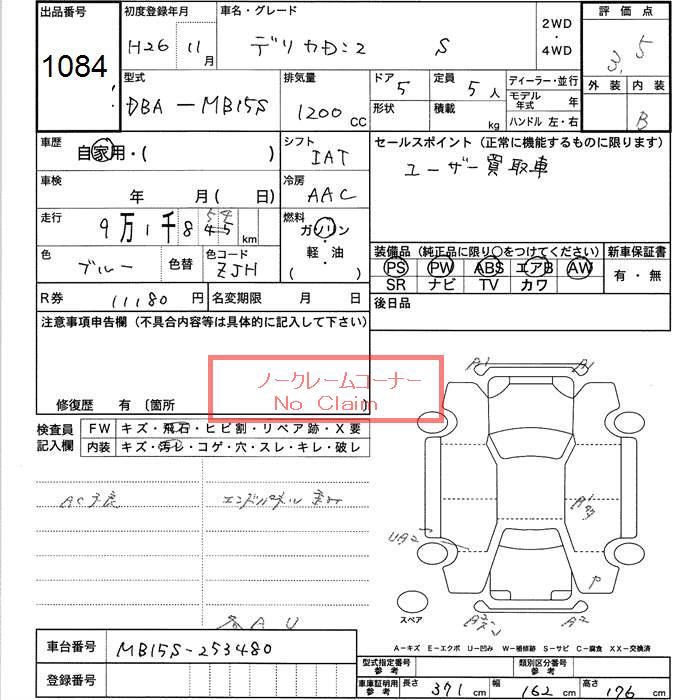 出品番号 初度登録年月 車名・グレード 2WD・4WD 評価点
1084 H26 11月 デリカD:2 S 3.5
外装 内装
B
型式 排気量 ドア 5 定員 5人 ディーラー・並行
DBA-MB15S 1200CC 形状 積載 kg モデル年式 年
ハンドル 左・右
車歴 自家用・( ) シフト IAT セールスポイント (正常に機能するものに限ります)
ユーザー買取車
車検 年 月( 日) 冷房 AAC
走行 9万1千8 km 燃料 ガソリン
軽・油
( )
色 ブルー 色替 色コード ZJH
装備品 (純正品に限り○をつけてください) 新車保証書
PS PW ABS エアB AW 有・無
SR ナビ TV カワ
R券 11180円 名変期限 月 日 後日品
注意事項申告欄 (不具合内容等は具体的に記入して下さい)
ノークレームコーナー
No Claim
修復歴 有 〔箇所 〕
検査員記入欄 FW キズ・飛石・ヒビ割・リペア跡・X要
内装 キズ・汚レ・コゲ・穴・スレ・キレ・破レ
AC不良
A U
スペア
A-キズ E-エクボ U-凹み W-補修跡 S-サビ C-腐食 XX-交換済
車台番号 MB15S-253480
登録番号
型式指定番号 参考 類別区分番号 参考
車庫証明用 参考 長さ 371cm 幅 162cm 高さ 176cm